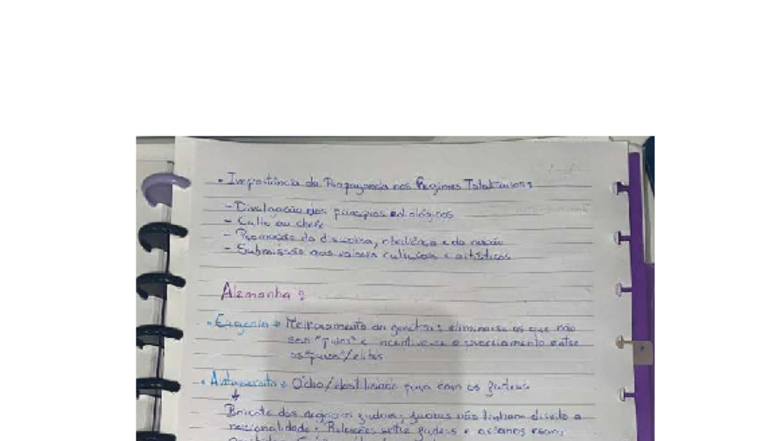 • Importância da Propaganda nos Regimes Totalitários:
- Divulgação dos princípios ideológicos
- Culto ao chefe
- Promoção da disciplina, obediência e da nação
- Submissão aos valores culturais e artísticos
Alemanha:
• Eugenia → Melhoramento da genética: elimina-se os que não
são "puros" e incentiva-se o casamento entre
os "puros"/elites
• Antissemita → Ódio/hostilidade para com os judeus
↓
Boicote dos negócios judeus; judeus não tinham direito a
nacionalidade. Relações entre judeus e arianos eram